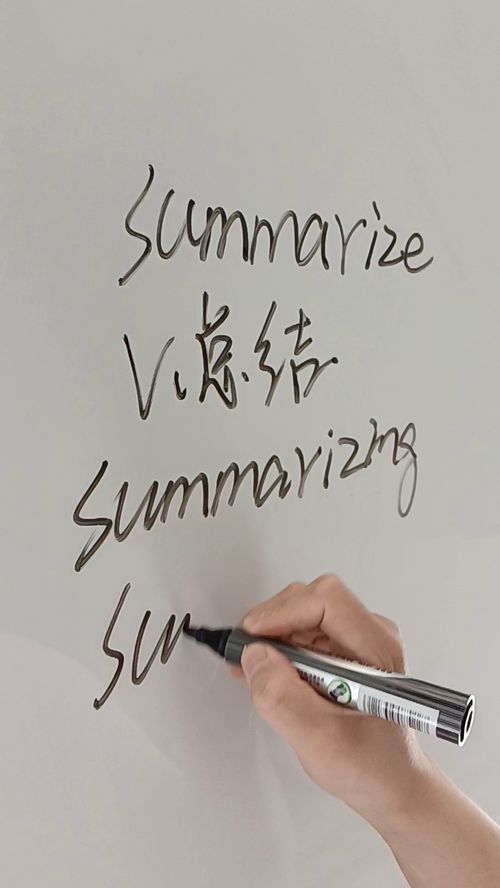 summarize
V.总结
summarizing
sum